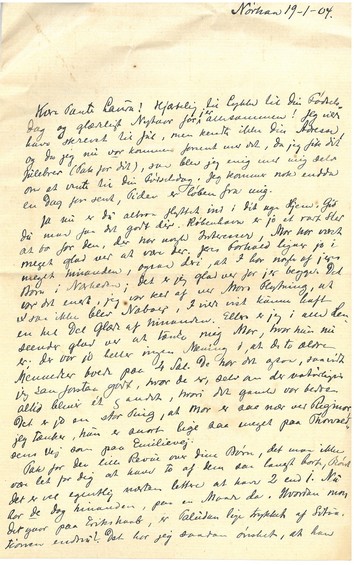 Nørhaa 19-1-04.
Kære Tante Laura! Hjertelig til Lykke til din Fødsels-
dag og glædeligt Nytaar for jer allesammen! Jeg vilde
have skrevet til Jul, men kendte ikke din Adresse,
og da jeg nu var kommen forbi med det, da jeg fik dit
Julebrev (Tak for det), saa blev jeg enig med mig selv
om at vente til din Fødselsdag. Jeg kommer nok endda
en Dag for sent, Tiden er løben fra mig.
Ja nu er du altsaa flyttet ind i dit nye Hjem. Gid
du maa faa det godt der. København er jo et rart Sted
at bo for den, der har nogle Interesser, Mor har været
meget glad ved at være der. Jeres Forhold ligner jo i
meget hinanden, ogsaa deri, at I har nogle af jeres
Børn i Nærheden; det er jeg glad ved for jer begge. Da
var det med, jeg var ked af ved Mors Flytning, at
I saa ikke blev Naboer, I vilde vist kunne haft
en hel Del Glæde af hinanden. Ellers er jeg i alle Hen-
seender glad ved at tænke mig Mor, hvor hun nu
er. Der var jo heller ingen Mening i, at de to ældre
Mennesker boede paa 4 Sal. De har det ogsaa, saavidt
jeg kan forstaa godt, hvor de er, selv om der naturligvis
altid bliver et &
Det er jo en stor Ting, at Mor er saa nær ved Regimor
jeg tænker, hun er snart lige saa meget paa Thorvald-
sens Vej som paa Emilievej.
Tak for den lille Revue over dine Børn, det maa ikke
være let for dig at have to af dem saa langt borte,
Det er vel egentlig næsten lettere at have 2 end 1. Nu
har de dog hinanden, paa en Maade da. Hvordan mon
det gaar paa Erikshaab, er Paludan lige
tionen endnu? Det har jeg saadan ønsket, at han